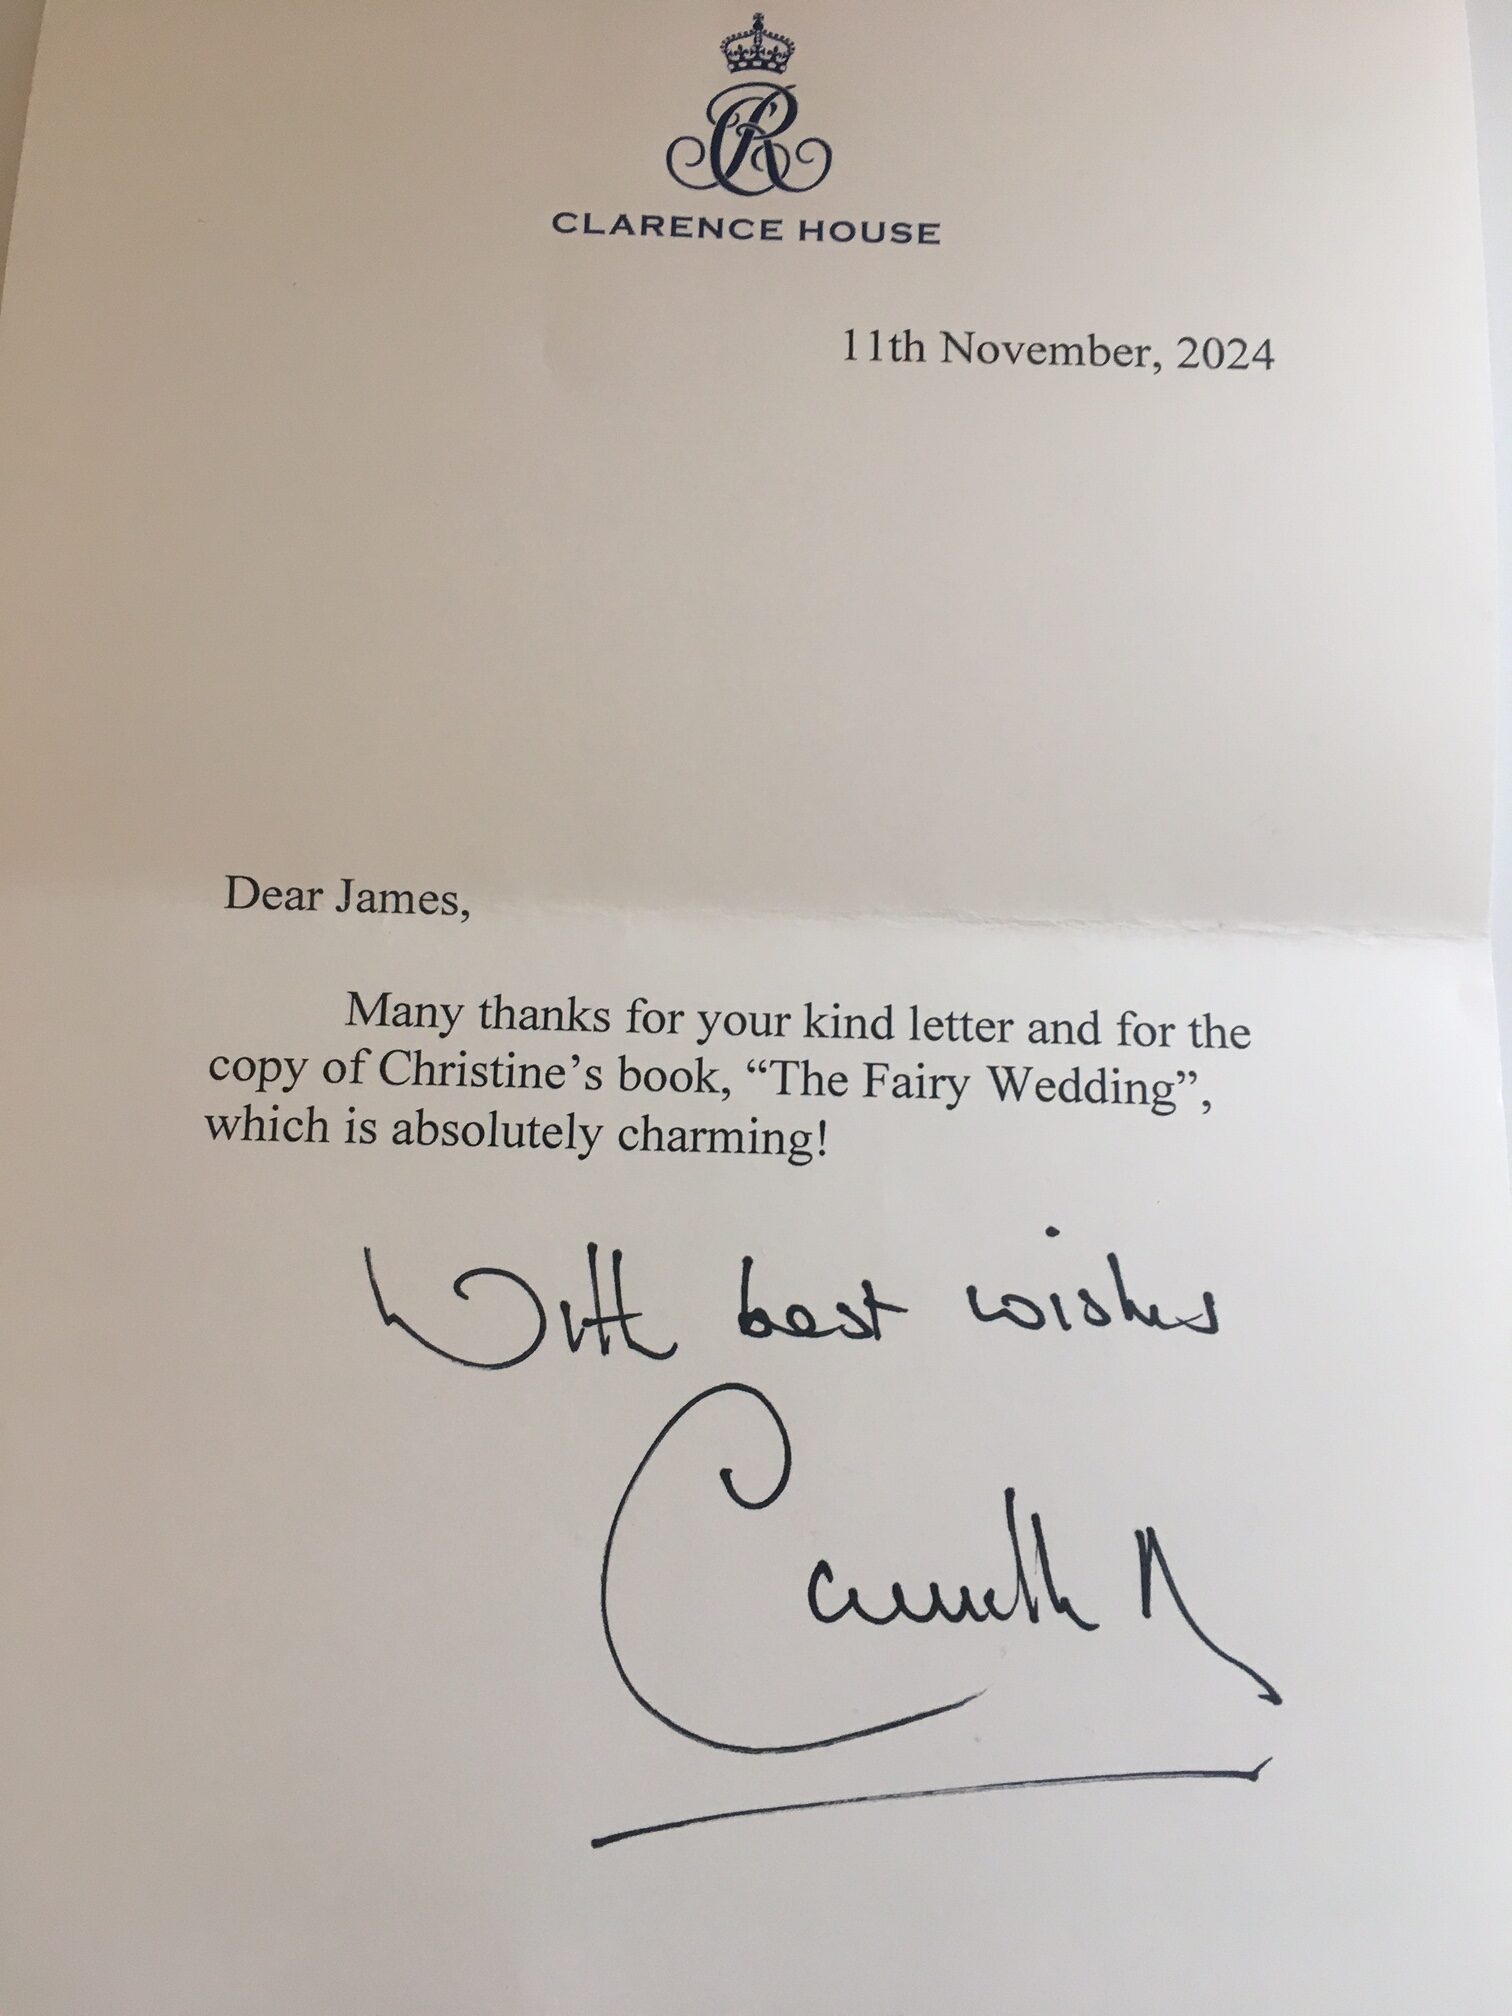 CR
CLARENCE HOUSE
11th November, 2024
Dear James,
Many thanks for your kind letter and for the
copy of Christine’s book, “The Fairy Wedding”,
which is absolutely charming!
With best wishes
Camilla R